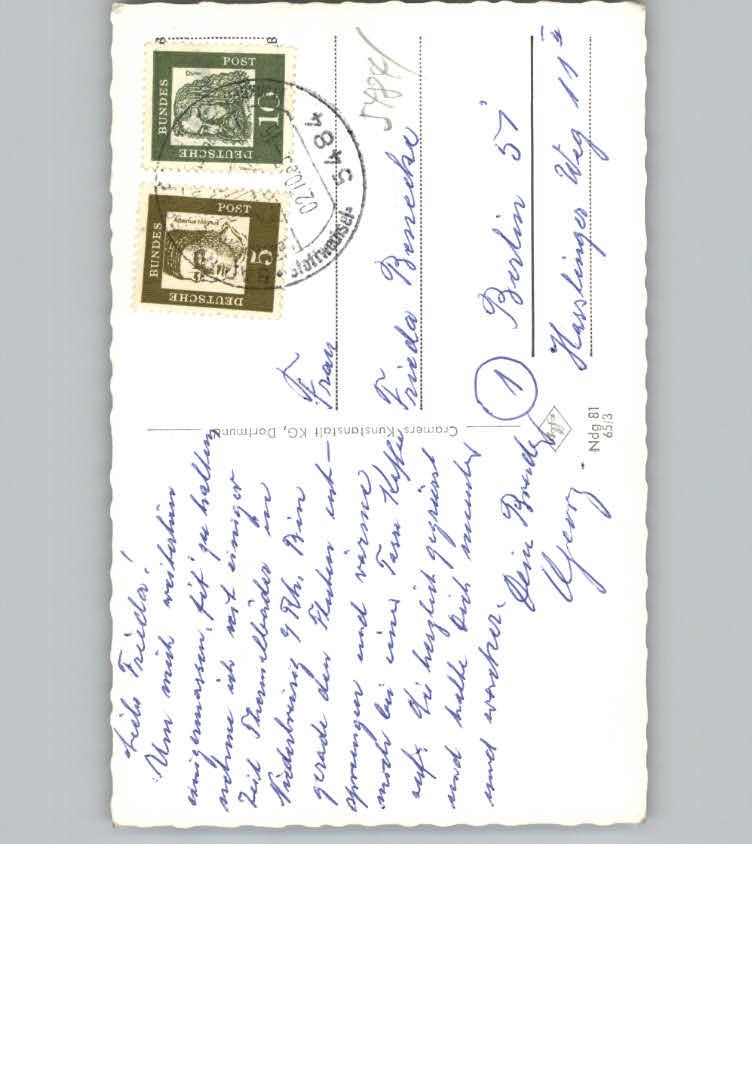 Liebe Frieda!
Um mich weiterhin
einigermassen „fit" zu halten
nehme ich seit einiger
Zeit Thermalbäder in
Niederbreisig a/Rh. Bin
gerade den Fluten ent-
sprungen und wärme
mich bei einer Tasse Kaffee
auf. Sei herzlich gegrüsst
und halte Dich munter
und wacker.
Dein Bruder
Georg.
Cramers Kunstanstalt KG, Dortmund
Ndg 81
65/3
DEUTSCHE
BUNDES
POST
10
DEUTSCHE
BUNDES
POST
Albertus Magnus
5
5481
02.10.6
Frau
Frieda Benecke
1 Berlin 51
Hasslinger Weg 11a